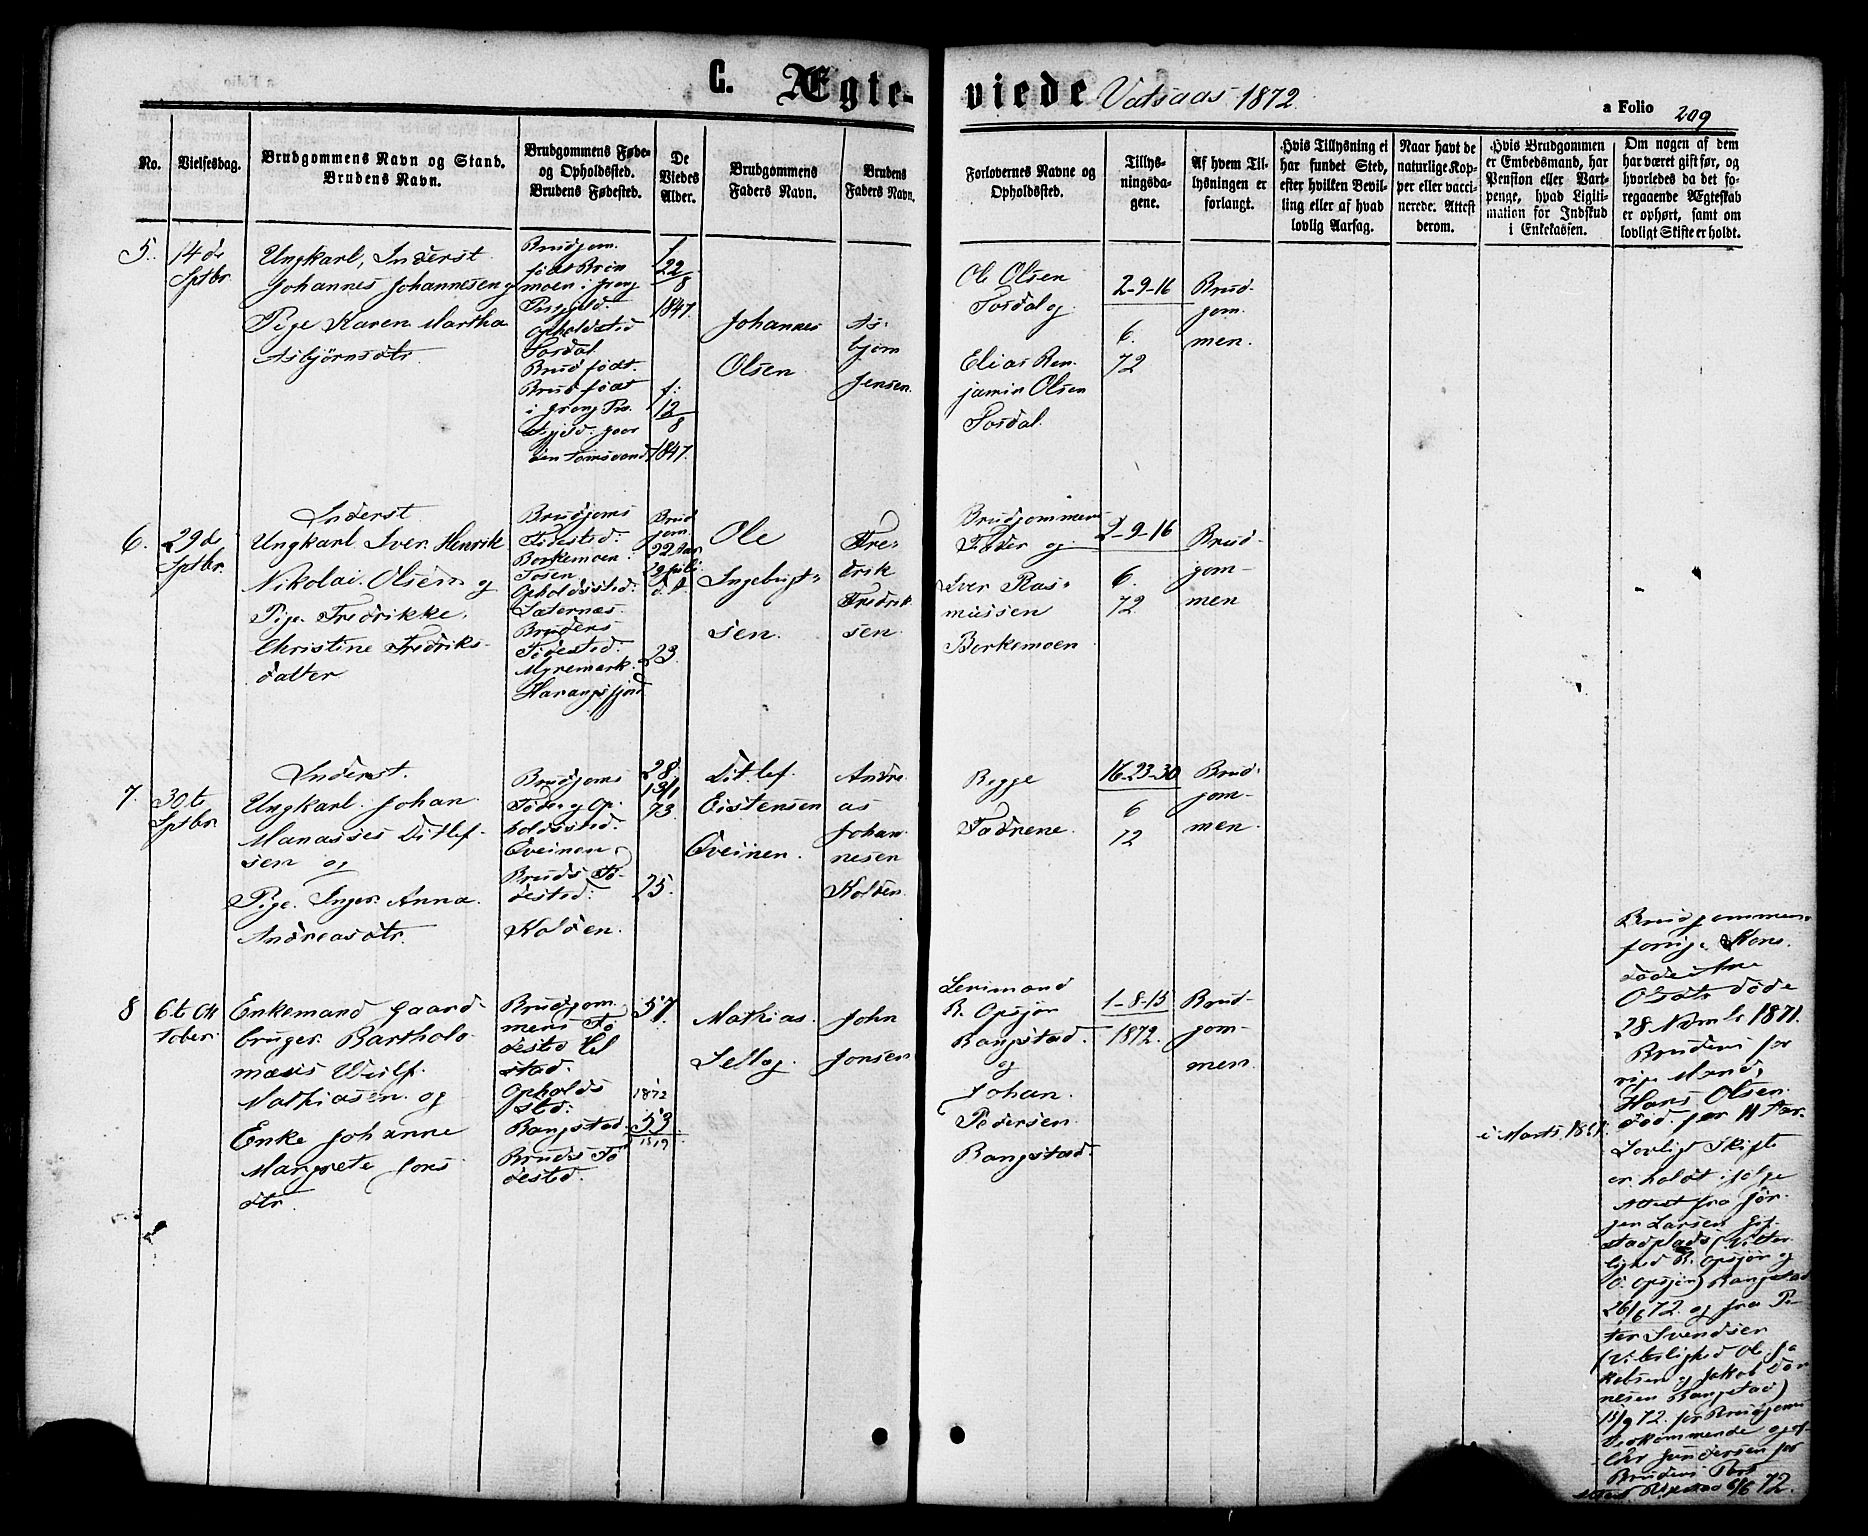 C. Ægte-
viede Vatsaas 1872
a Folio 209
No.
Vielsesdag.
Brudgommens Navn og Stand.
Brudens Navn.
Brudgommens Føde-
og Opholdssted.
Brudens Fødested.
De
Viedes
Alder.
Brudgommens
Faders Navn.
Brudens
Faders Navn.
Forlovernes Navne og
Opholdssted.
Tillys-
ningsda-
gene.
Af hvem Til-
lysningen er
forlangt.
Hvis Tillysning ei
har fundet Sted,
efter hvilken Bevil-
ling eller af hvad
lovlig Aarsag.
Naar havt de
naturlige Kop-
per eller vacci-
nerede. Attest
derom.
Hvis Brudgommen
er Embedsmand, har
Pension eller Vart-
penge, hvad Ligiti-
mation for Indskud
i Enkekassen.
Om nogen af dem
har været gift før, og
hvorledes da det fo-
regaaende Ægteskab
er ophørt, samt om
lovligt Skifte er holdt.
5.
14de
Sptbr.
Ungkarl, Inderst
Johannes Johannesen og
Pige Karen Martha
Asbjørnsdtr.
Brudgom.
født Brøn
moen i Grong
Præstgjeld.
Opholdssted
Tosdal
Brud født.
Brud født
i Grong Præ
stgjeld.
f.
22
8
1847.
f:
12
8
1847.
Johannes
Olsen
As-
bjørn
Jensen.
Ole Olsen
Tosdal og
Elias Ben-
jamin Olsen
Tosdal.
2-9-16
6.
72
Brud-
gom-
men.
6.
29de
Sptbr.
Inderst
Ungkarl Iver Henrik
Nikolai Olsen og
Pige Fredrikke
Christine Fredriks-
datter
Brudgoms
Fødested:
Borkemoen
Tosen
Opholdssted:
Sæternæs.
Brudens
Fødested:
Myremark.
Harangsfjord
Brud
gom
22 Aar
23.
Ole
Ingebrigt-
sen.
Fre-
drik
Fredrik-
sen.
Brudgommens
Fader og
Iver Ras-
mussen
Borkemoen
2-9-16
6.
72
Brud-
gom-
men
7.
30te
Sptbr.
Inderst.
Ungkarl Johan
Manasses Ditlef-
sen og
Pige Inger Anna
Andreasdtr.
Brudgoms
Føde- og Op-
holdssted:
Eveinen
Bruds Fø-
dested:
Kolden.
28.
13/1
73.
25.
Ditlef
Eistensen
Eveinen.
Andre
as
Johan
nesen
Kolden.
Begge
Fædrene.
16-23-30
6
72
Brud-
gom-
men.
8
6te Ok
tober
Enkemand Gaard-
bruger Bartholo
mæus Wulf.
Mathiasen og
Enke Johanne
Margrete Jons
dtr.
Brudgom-
mens Fø
dested Hel
stad.
Opholds
sted:
Bangstad
Bruds Fø
dested.
57
1872
53
1819
Mathias
Sellæg.
John
Jonsen
Lensmand
R. Opsjøn
Bangstad.
og
Johan
Pedersen
Bangstad.
1-8-15
1872.
Brud-
gom-
men.
i Marts 1861.
Brudgommens
forrige Kone
Ane
Olsdtr døde
28 Novmbr 1871.
Brudens for
rige Mand,
Hans Olsen
død for 11 Aar
Lovlig Skifte
er holdt ifølge
Attest fra Jør-
gen Larsen
(Vitter
lighed R. Opsjøn og
O. Opsjøn) Bangstad
26/6 72. og fra Pe-
ter Svendsen
(Vitterlighed Ole Ja
kobsen og Jakob Da
nesen Bangstad)
15/9 72. for Brudgoms
Vedkommende og af
for
Brudens Part
6/6 72.